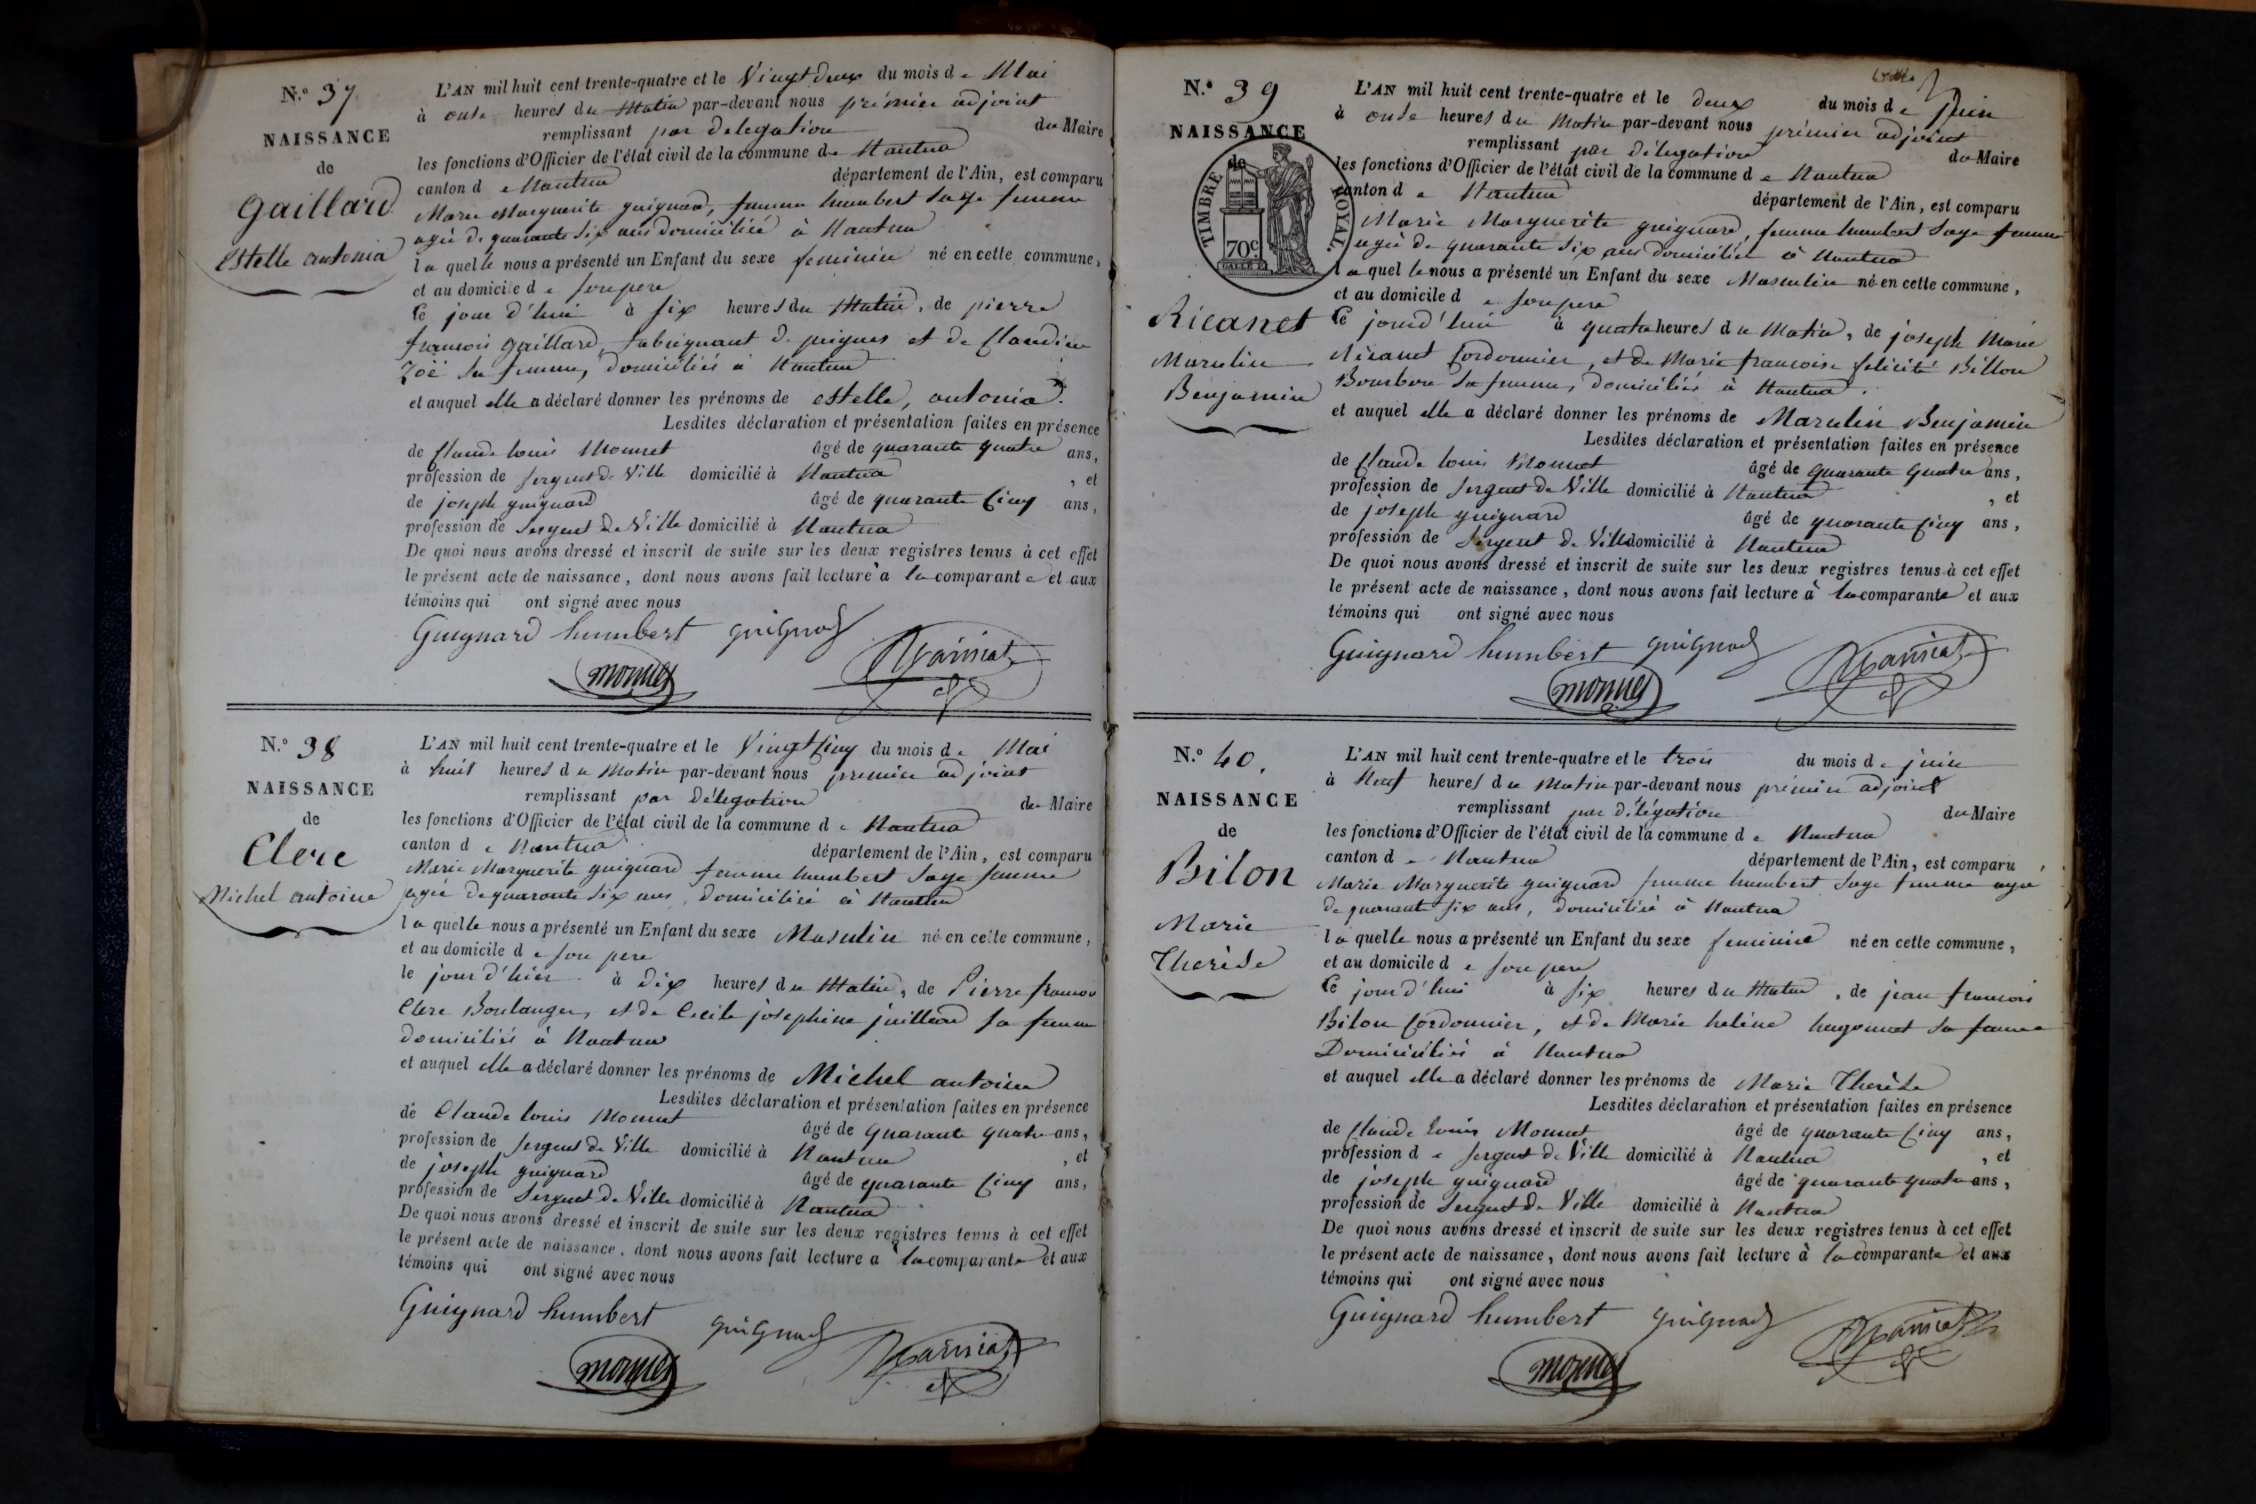 N.o 37
NAISSANCE
de
Gaillard
Estelle antonia
L'AN mil huit cent trente-quatre et le Vingt deux du mois de Mai
à onze heures du Matin par-devant nous prémier adjoint
remplissant par délégation du Maire
les fonctions d'Officier de l'état civil de la commune de Nantua
canton de Nantua département de l'Ain, est comparu
Marie Marguerite guignard, femme humbert Sage femme
agée de quarante Six ans domiciliée à Nantua
laquelle nous a présenté un Enfant du sexe feminin né en cette commune,
et au domicile de son pere
Ce jour d'hui à six heures du Matin, de pierre
francois gaillard, fabriquant de peignes et de Claudine
Zoë sa femme, domiciliés à Nantua
et auquel elle a déclaré donner les prénoms de estelle, antonia.
Lesdites déclaration et présentation faites en présence
de Claude louis Monnet âgé de quarante quatre ans,
profession de Sergent de Ville domicilié à Nantua, et
de joseph guignard âgé de quarante Cinq ans,
profession de Sergent de Ville domicilié à Nantua
De quoi nous avons dressé et inscrit de suite sur les deux registres tenus à cet effet
le présent acte de naissance, dont nous avons fait lecture à la comparante et aux
témoins qui ont signé avec nous
Guignard humbert guignard
monnet
N.o 38
NAISSANCE
de
Clerc
Michel antoine
L'AN mil huit cent trente-quatre et le Vingt Cinq du mois de Mai
à huit heures du Matin par-devant nous premier adjoint
remplissant par délégation du Maire
les fonctions d'Officier de l'état civil de la commune de Nantua
canton de Nantua département de l'Ain, est comparu
Marie Marguerite guignard femme humbert Sage femme
agée de quarante Six ans, domiciliée à Nantua
laquelle nous a présenté un Enfant du sexe Masculin né en cette commune,
et au domicile de son pere
le jour d'hier à dix heures du Matin, de Pierre francois
Clerc Boulanger, et de Cecile josephine juillard sa femme
domiciliés à Nantua
et auquel elle a déclaré donner les prénoms de Michel antoine
Lesdites déclaration et présentation faites en présence
de Claude louis Monnet âgé de quarante quatre ans,
profession de Sergent de Ville domicilié à Nantua, et
de joseph guignard âgé de quarante Cinq ans,
profession de Sergent de Ville domicilié à Nantua
De quoi nous avons dressé et inscrit de suite sur les deux registres tenus à cet effet
le présent acte de naissance, dont nous avons fait lecture a la comparante et aux
témoins qui ont signé avec nous
Guignard humbert guignard
monnet
N.o 39
NAISSANCE
de
TIMBRE ROYAL.
70c
Ricanet
Marulin
Benjamin
L'AN mil huit cent trente-quatre et le deux du mois de Juin
à onze heures du Matin par-devant nous prémier adjoint
remplissant par délégation du Maire
les fonctions d'Officier de l'état civil de la commune de Nantua
canton de Nantua département de l'Ain, est comparu
Marie Marguerite guignard, femme humbert Sage femme
agée de quarante Six ans domiciliée à Nantua
laquelle nous a présenté un Enfant du sexe Masculin né en cette commune,
et au domicile de son pere
Ce jourd'hui à quatre heures du Matin, de joseph Marie
Ricanet Cordonnier, et de Marie francoise felicité Billon
Bourbon sa femme, domiciliés à Nantua.
et auquel elle a déclaré donner les prénoms de Marulin Benjamin
Lesdites déclaration et présentation faites en présence
de Claude louis Monnet âgé de quarante quatre ans,
profession de Sergent de Ville domicilié à Nantua, et
de joseph guignard âgé de quarante Cinq ans,
profession de Sergent de Ville domicilié à Nantua
De quoi nous avons dressé et inscrit de suite sur les deux registres tenus à cet effet
le présent acte de naissance, dont nous avons fait lecture à la comparante et aux
témoins qui ont signé avec nous
Guignard humbert guignard
monnet
N.o 40.
NAISSANCE
de
Bilon
Marie
Therèse
L'AN mil huit cent trente-quatre et le trois du mois de juin
à Neuf heures du Matin par-devant nous prémier adjoint
remplissant par délégation du Maire
les fonctions d'Officier de l'état civil de la commune de Nantua
canton de Nantua département de l'Ain, est comparu
Marie Marguerite guignard femme humbert Sage femme agée
de quarante six ans, domiciliée à Nantua
laquelle nous a présenté un Enfant du sexe feminin né en cette commune,
et au domicile de son pere
Ce jourd'hui à six heures du Matin, de jean francois
Bilon Cordonnier, et de Marie helène hugonnet sa femme
Domiciliés à Nantua
et auquel elle a déclaré donner les prénoms de Marie Therèse
Lesdites déclaration et présentation faites en présence
de Claude louis Monnet âgé de quarante Cinq ans,
profession de Sergent de Ville domicilié à Nantua, et
de joseph guignard âgé de quarante quatre ans,
profession de Sergent de Ville domicilié à Nantua
De quoi nous avons dressé et inscrit de suite sur les deux registres tenus à cet effet
le présent acte de naissance, dont nous avons fait lecture à la comparante et aux
témoins qui ont signé avec nous
Guignard humbert guignard
monnet